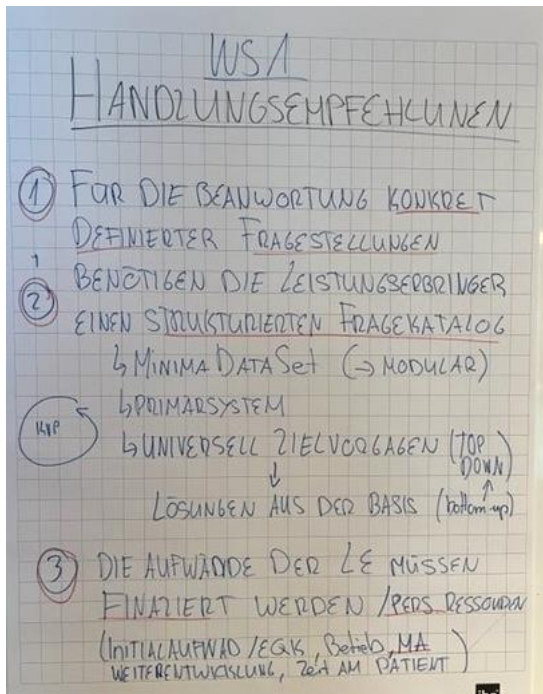 WS1
HANDLUNGSEMPFEHLUNEN
① FÜR DIE BEANWORTUNG KONKRET
DEFINIERTER FRAGESTELLUNGEN
② BENÖTIGEN DIE LEISTUNGSERBRINGER
EINEN STRUKTURIERTEN FRAGEKATALOG
↳ MINIMA DATA Set (→ MODULAR)
↳ PRIMARSYSTEM
KVP
↳ UNIVERSELL ZIELVORGAGEN (TOP DOWN)
↓
LÖSUNGEN AUS DER BASIS (bottom-up)
③ DIE AUFWÄNDE DER LE MÜSSEN
FINAZIERT WERDEN / PERS. RESSOURCEN
(INITIALAUFWAD / EGK, Betieb, MA
WEITERENTWICKLUNG, Zeit AM PATIENT)